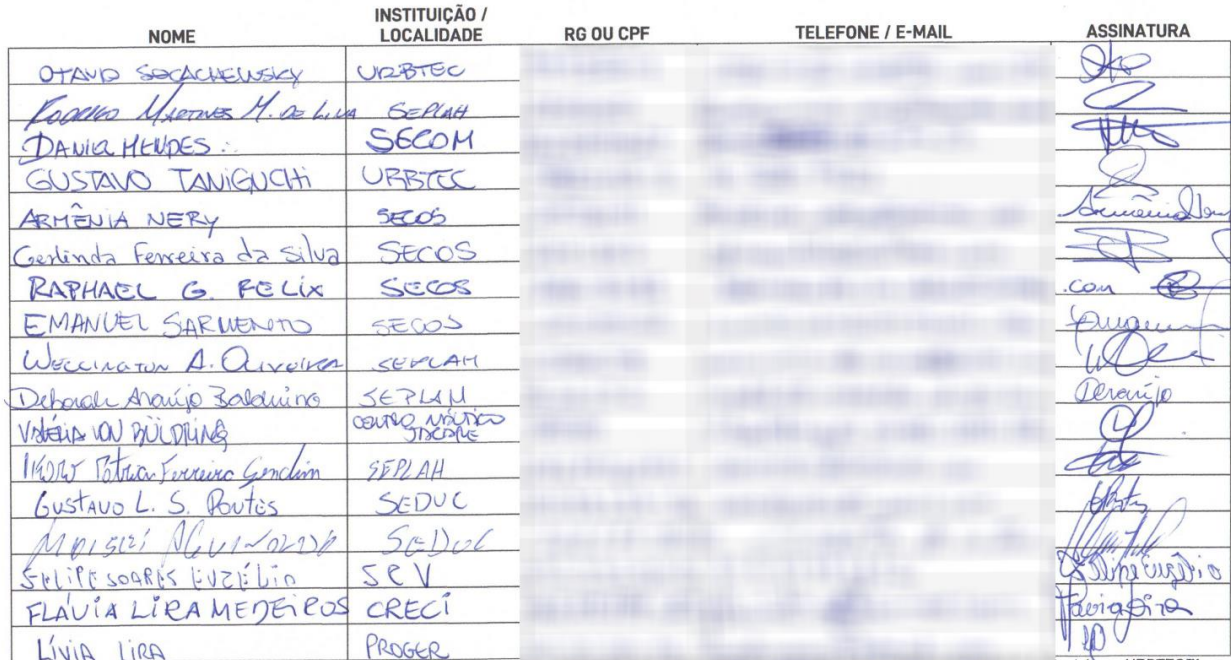 NOME INSTITUIÇÃO / LOCALIDADE RG OU CPF TELEFONE / E-MAIL ASSINATURA
OTAVIO URBTEC
RODRIGO MARTINES M. DE LIMA SEPLAH
DANIEL MENDES SECOM
GUSTAVO TANIGUCHI URBTEC
ARMÊNIA NERY SECOS
Gerlinda Ferreira da Silva SECOS
RAPHAEL G. FELIX SECOS .com
EMANUEL SARMENTO SECOS
WELLINGTON A. OLIVEIRA SEPLAH
Deborah Araújo Balduino SEPLAM DAraújo
VALÉRIA VON CENTRO NÁUTICO JACARÉ
Ferreira Gondim SEPLAH
GUSTAVO L. S. PONTES SEDUC
SEDUC
FELIPE SOARES EUZÉLIO SCV
FLÁVIA LIRA MEDEIROS CRECI Flávia Lira
LÍVIA LIRA PROGER